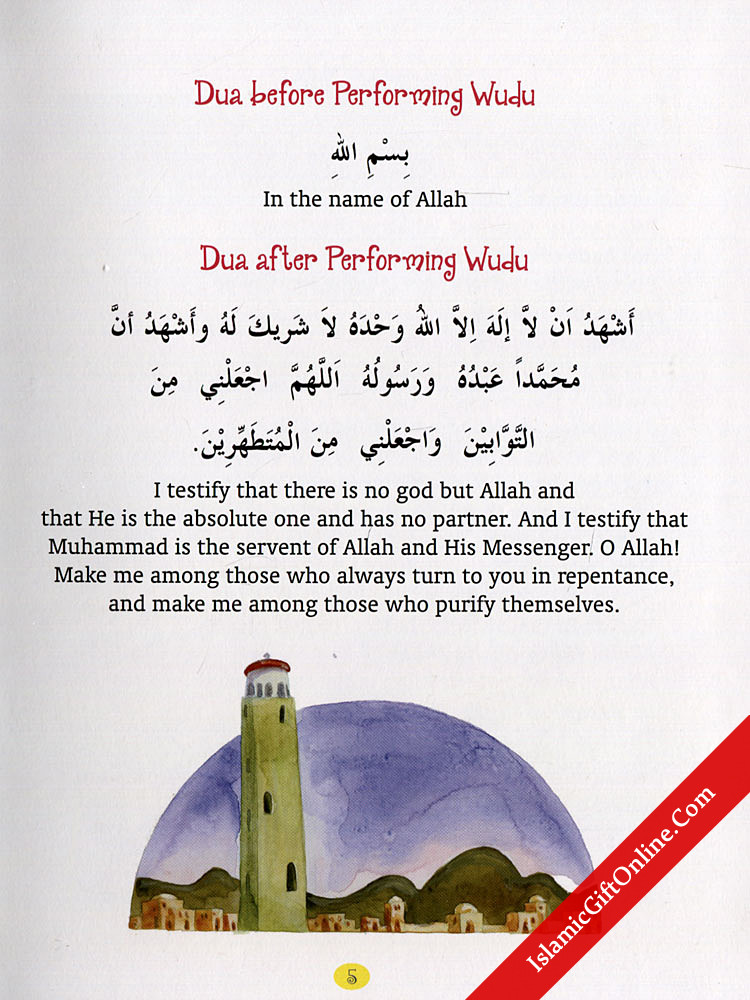 Dua before Performing Wudu
بِسْمِ اللهِ
In the name of Allah
Dua after Performing Wudu
أَشْهَدُ اَنْ لاَّ إلَهَ اِلاَّ اللهُ وَحْدَهُ لاَ شَرِيكَ لَهُ وأَشْهَدُ أنَّ
مُحَمَّداً عَبْدُهُ وَرَسُولُهُ اَللَّهُمَّ اجْعَلْنِي مِنَ
التَّوَّابِيْنَ وَاجْعَلْنِي مِنَ الْمُتَطَهِّرِيْنَ.
I testify that there is no god but Allah and
that He is the absolute one and has no partner. And I testify that
Muhammad is the servent of Allah and His Messenger. O Allah!
Make me among those who always turn to you in repentance,
and make me among those who purify themselves.
IslamicGiftOnline.Com
5